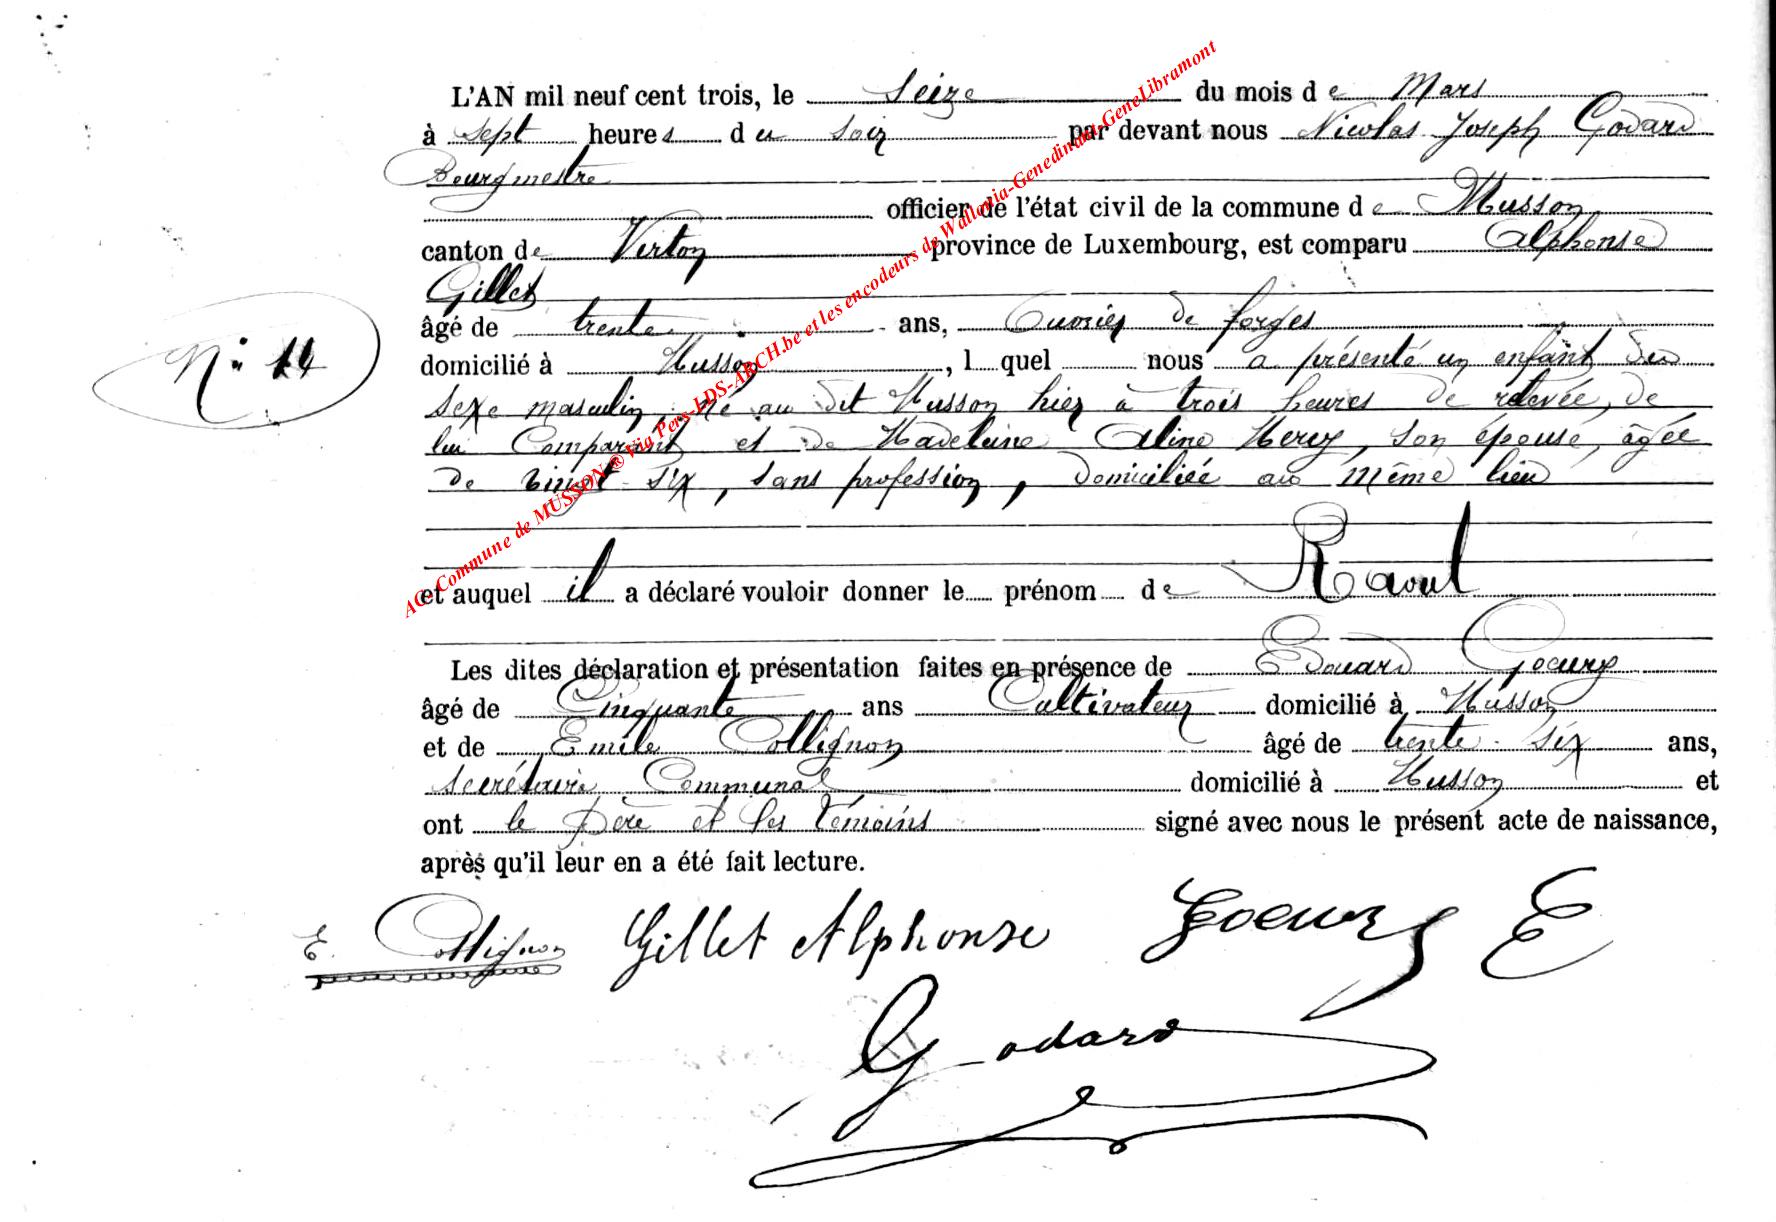 L'AN mil neuf cent trois, le seize du mois de Mars
à sept heures du soir par devant nous Nicolas Joseph Godard
Bourgmestre
officier de l'état civil de la commune de Musson
canton de Virton province de Luxembourg, est comparu Alphonse
Gillet
âgé de trente ans, Ouvrier de forges
N° 14
domicilié à Musson, l quel nous a présenté un enfant du
sexe masculin, né au dit Musson hier à trois heures de relevée, de
lui Comparant et de Madeleine Aline Mery, son épouse, âgée
de vingt-six, sans profession, domiciliée au même lieu
et auquel il a déclaré vouloir donner le prénom de Raoul
Les dites déclaration et présentation faites en présence de Edouard Goeury
âgé de Cinquante ans Cultivateur domicilié à Musson
et de Emile Collignon âgé de trente-six ans,
secrétaire Communal domicilié à Musson et
ont le père et les témoins signé avec nous le présent acte de naissance,
après qu'il leur en a été fait lecture.
E. Collignon Gillet Alphonse Goeury E
Godard
AC Commune de MUSSON ® Via Pers-LDS-ARCH.be et les encodeurs de Wallonia-Genedinant-GeneLibramont